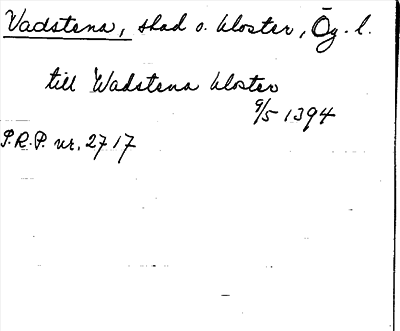 Vadstena, stad o. kloster, Ög. l.
till Wadstena kloster
9/5 1394
P.R.P. nr. 2717